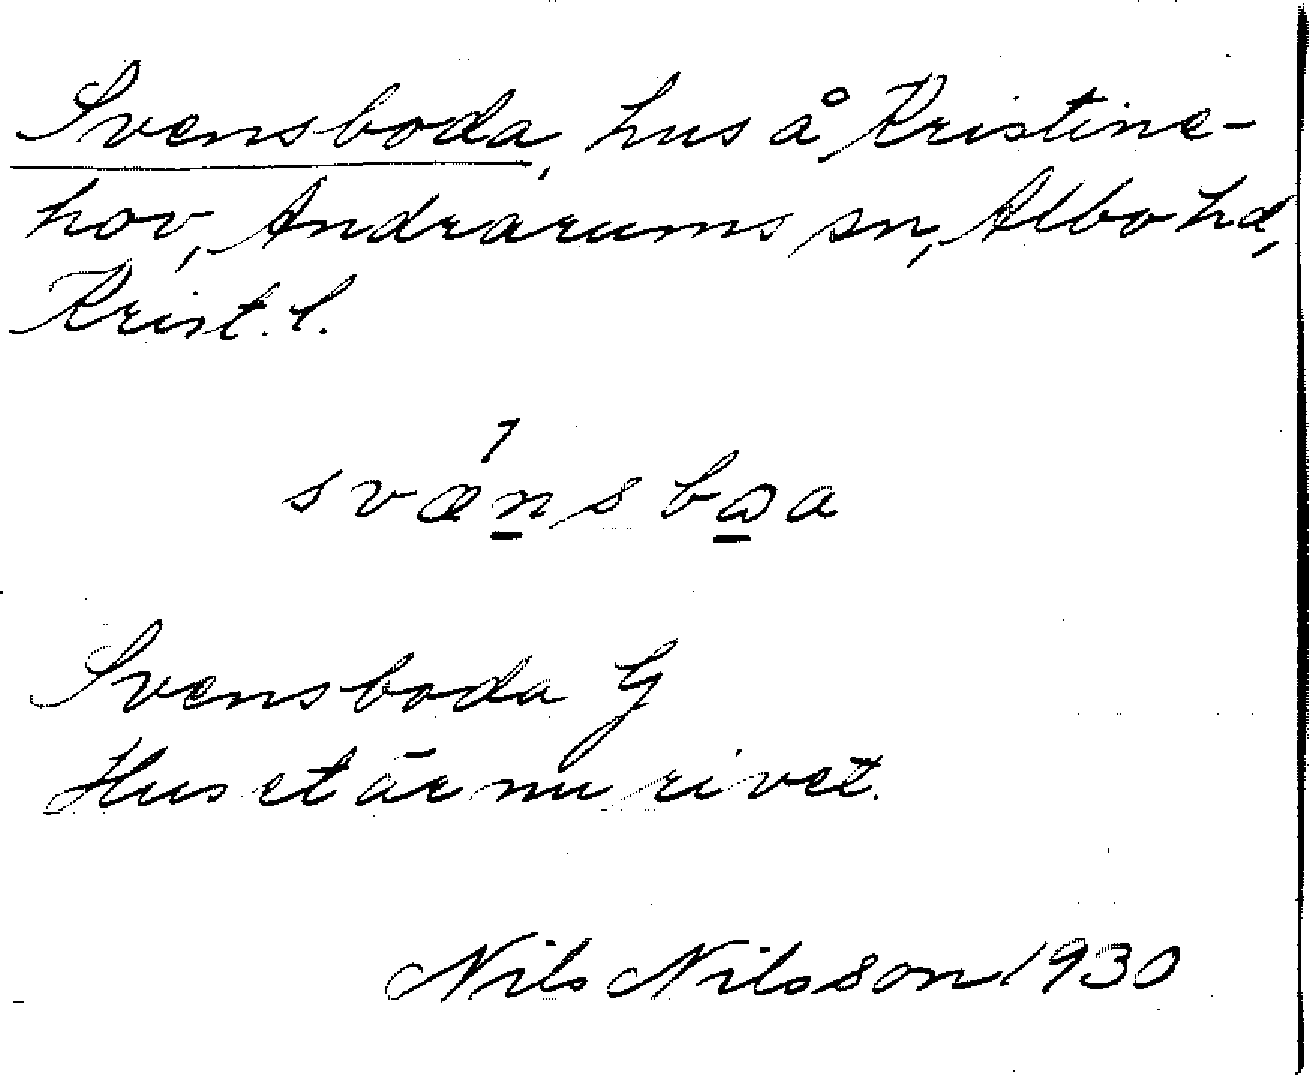 Svensboda, hus å Kristine-
hov, Andrarums sn, Albo hd,
Krist. l.
Svensboda G
Huset är nu rivet.
Nils Nilsson 1930